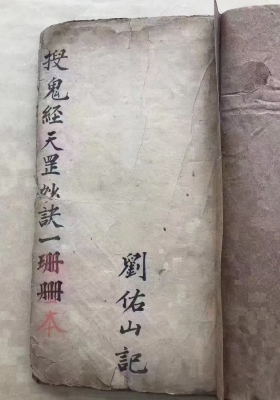 捉鬼経天罡妙訣一珊冊本
劉佑山記